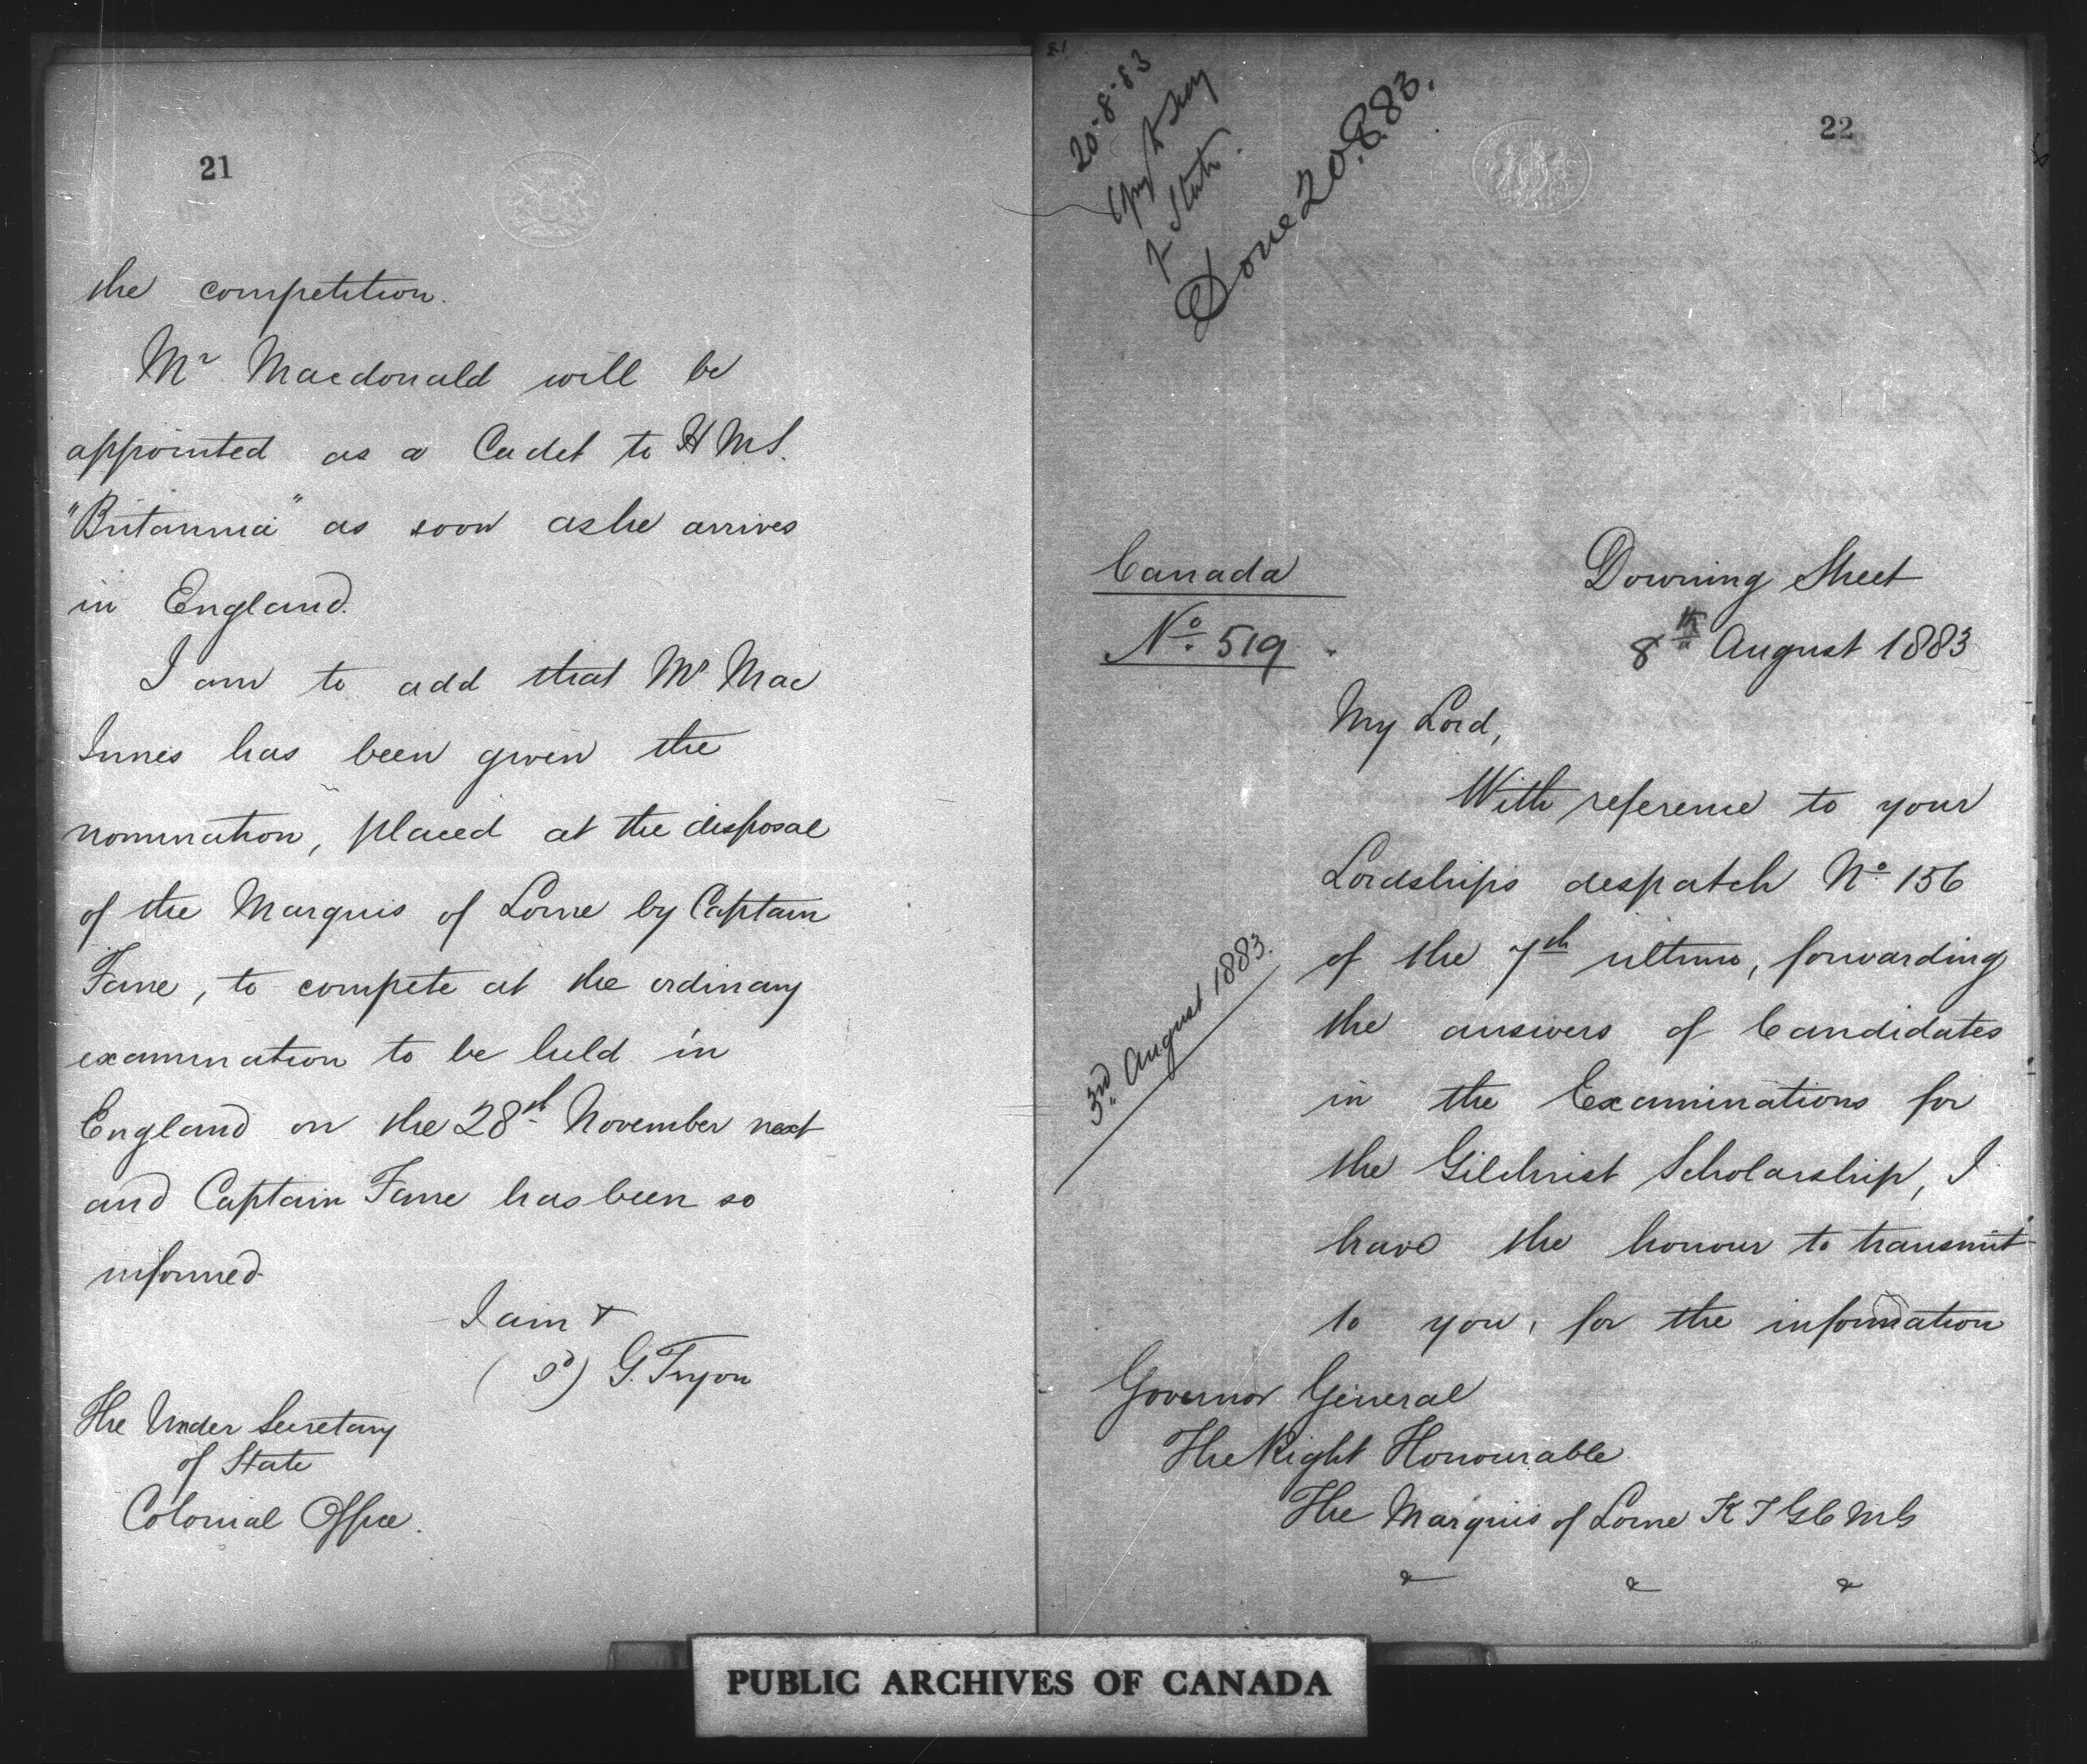 21
the competition.
Mr Macdonald will be
appointed as a Cadet to H M S.
"Britannia" as soon as he arrives
in England.
I am to add that Mr Mac
Innes has been given the
nomination, placed at the disposal
of the Marquis of Lorne by Captain
Fane, to compete at the ordinary
examination to be held in
England on the 28th November next
and Captain Fane has been so
informed.
I am &
(Sd) G. Tryon
The Under Secretary
of State
Colonial Office.
21
20-8-83
Copy to Secy
of State.
Done 20.8.83.
22
Canada
No. 519
Downing Street
8th August 1883
My Lord,
With reference to your
Lordships despatch No 156
of the 7th ultimo, forwarding
the answers of Candidates
in the Examinations for
the Gilchrist Scholarship, I
have the honour to transmit
to you, for the information
3rd August 1883.
Governor General
The Right Honourable
The Marquis of Lorne K T G C M G
& & &
PUBLIC ARCHIVES OF CANADA